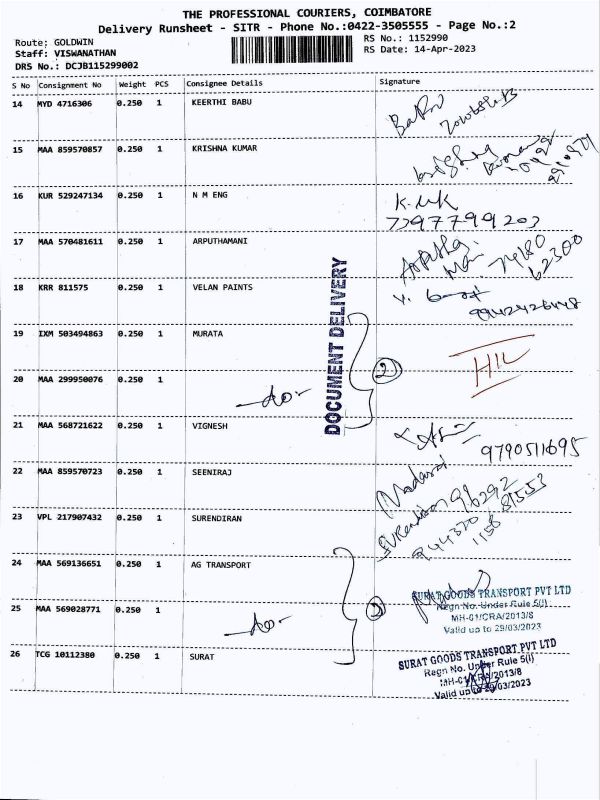 THE PROFESSIONAL COURIERS, COIMBATORE
Delivery Runsheet - SITR - Phone No.:0422-3505555 - Page No.:2
Route: GOLDWIN
RS No.: 1152990
Staff: VISWANATHAN
RS Date: 14-Apr-2023
DRS No.: DCJB115299002
S No Consignment No Weight PCS Consignee Details Signature
14 MYD 4716306 0.250 1 KEERTHI BABU
15 MAA 859570857 0.250 1 KRISHNA KUMAR
16 KUR 529247134 0.250 1 N M ENG
7397799203
17 MAA 570481611 0.250 1 ARPUTHAMANI
74180
62300
18 KRR 811575 0.250 1 VELAN PAINTS
9942426448
DOCUMENT DELIVERY
19 IXM 503494863 0.250 1 MURATA
20 MAA 299950076 0.250 1 -do- 2
21 MAA 568721622 0.250 1 VIGNESH
9790511695
22 MAA 859570723 0.250 1 SEENIRAJ
23 VPL 217907432 0.250 1 SURENDIRAN
Surendiran
24 MAA 569136651 0.250 1 AG TRANSPORT
SURAT GOODS TRANSPORT PVT LTD
Regn No. Under Rule 5(i)
MH-01/CRA/2013/8
Valid up to 29/03/2023
25 MAA 569028771 0.250 1 -do-
26 TCG 10112380 0.250 1 SURAT
SURAT GOODS TRANSPORT PVT LTD
Regn No. Under Rule 5(i)
MH-01/CRA/2013/8
Valid up to 29/03/2023